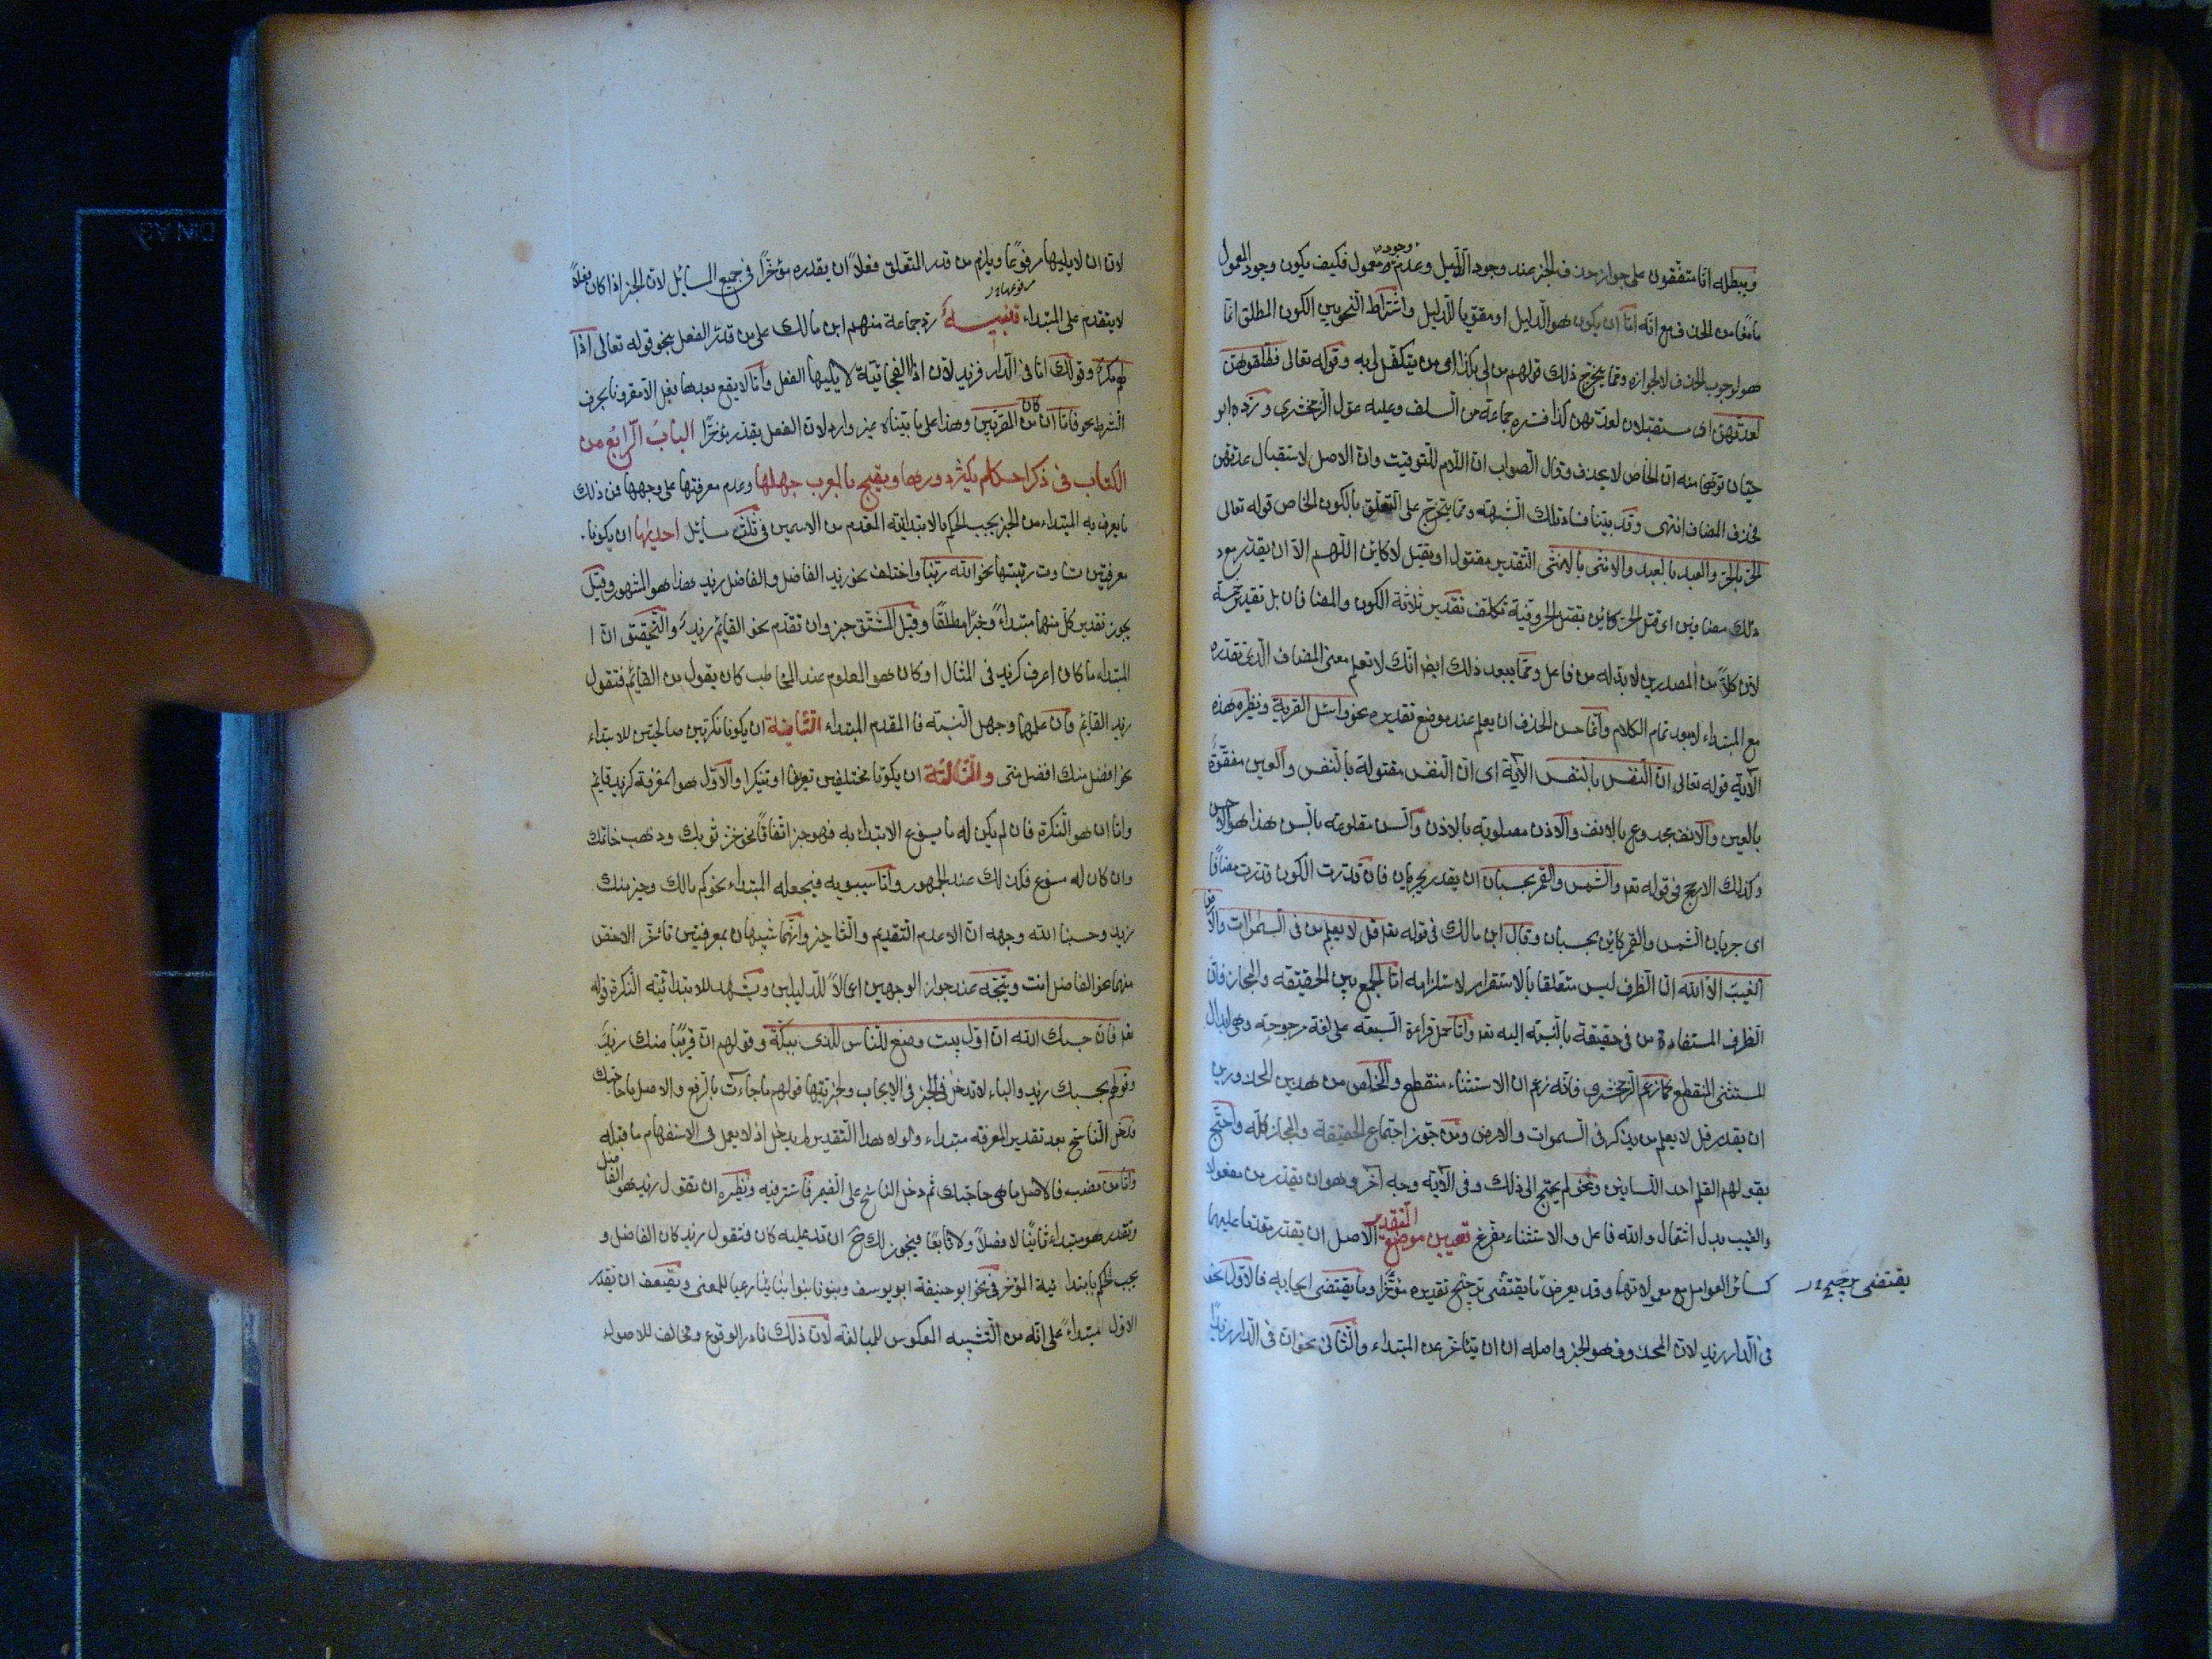 ويبطله انا متفقون على جواز حذف الخبر عند وجود الدليل وعدم وجود معمول فكيف يكون وجود المعمول
مانعا من الحذف مع انه اما ان يكون هو الدليل او مقويا للدليل واشتراط النحويين الكون المطلق انما
هو لوجوب الحذف لا لجوازه ومما يتخرج ذلك قولهم من لى بكذا اى من يتكفل لى به وقوله تعالى فطلقوهن
لعدتهن اى مستقبلات لعدتهن كذا فسره جماعة من السلف وعليه عول الزمخشرى ورده ابو
حيان توهما منه ان الخاص لا يحذف وقال الصواب ان اللام للتوقيت وان الاصل لاستقبال عدتهن
فحذف المضاف انتهى وقد بينا فساد تلك الشبهة ومما يتخرج على التعلق بالكون الخاص قوله تعالى
الحر بالحر والعبد بالعبد والانثى بالانثى التقدير مقتول او يقتل لا كاين اللهم الا ان يقدر مع
ذلك مضافين اى قتل الحر كاين بقتل الحر وفيه تكلف تقدير ثلاثة الكون والمضافان بل تقدير خمسة
لان كلا من المصدرين لابد له من فاعل ومما يبعد ذلك ايضا انك لا تعلم معنى المضاف الذى تقدره
مع المبتداء الا بعد تمام الكلام وانما حسن الحذف ان يعلم عند موضع تقديره نحو واسئل القرية ونظيره هذه
الآية قوله تعالى ان النفس بالنفس الآية اى ان النفس مقتولة بالنفس والعين مفقوءة
بالعين والانف مجدوع بالانف والاذن مصلوبة بالاذن والسن مقلوعة بالسن هذا هو الاحسن
وكذلك الارجح فى قوله تعه والشمس والقمر بحسبان ان يقدر يجريان فان قدرت الكون قدرت مضافا
اى جريان الشمس والقمر كاين بحسبان وقال ابن مالك فى قوله تعه قل لا يعلم من فى السموات والارض
الغيب الا الله ان الظرف ليس متعلقا بالاستقرار لاستلزامه اما الجمع بين الحقيقة والمجاز فان
الظرف المستفادة من فى حقيقة بالنسبة اليه تعه واما حمل قراءة السبعة على لغة مرجوحة وهى ابدال
المستثنى المنقطع كما زعم الزمخشرى فانه زعم ان الاستثناء منقطع والمخلص من هذين المحذورين
ان يقدر قل لا يعلم من يذكر فى السموات والارض ومن جوز اجتماع الحقيقة والمجاز كله واحتج
بقولهم القلم احد اللسانين ونحو لم يحتج الى ذلك وفى الآية وجه آخر وهو ان يقدر من مفعولا
والغيب بدل اشتمال والله فاعل والاستثناء مفرغ تعيين موضع التقدير الاصل ان يقدر مقدما عليها
كسائر العوامل مع معمولاتها وقد يعرض ما يقتضى ترجيح تقديره مؤخرا وما يقتضى ايجابه فالاول نحو
يقتضى ترجيح
فى الدار زيد لان المحذوف هو الخبر واصله ان يتاخر عن المبتداء والثانى نحو ان فى الدار زيدا
لان ان لا يليها مرفوعها ويلزم من قدر المتعلق فعلا ان يقدره مؤخرا فى جميع المسائل لان الخبر اذا كان فعلا
لا يتقدم على المبتداء تنبيه رد جماعة منهم ابن مالك على من قدر الفعل بنحو قوله تعالى اذا
لهم مكر وقولك اما فى الدار فزيد لان اذا الفجائية لا يليها الفعل واما لا يقع بعدها فعل الا مقرونا بحرف
الشرط نحو فاما ان كان من المقربين وهذا على ما بيناه غير وارد لان الفعل يقدر مؤخرا الباب الرابع من
الكتاب فى ذكر احكام يكثر دورها ويقبح بالمعرب جهلها وعدم معرفتها على وجهها فمن ذلك
ما يعرف به المبتداء من الخبر يجب الحكم بالابتدائية المقدم من الاسمين فى ثلث مسائل احديها ان يكونا
معرفتين تساوت رتبتهما نحو الله ربنا واختلف نحو زيد الفاضل والفاضل زيد هذا هو المشهور وقيل
يجوز تقدير كل منهما مبتداء وخبرا مطلقا وقيل المشتق خبر وان تقدم نحو القايم زيد والتحقيق ان ا
المبتداء ما كان اعرف كزيد فى المثال او كان هو المعلوم عند المخاطب كان يقول من القايم فتقول
زيد القايم فان علمها وجهل النسبة فالمقدم المبتداء الثانية ان يكونا نكرتين صالحتين للابتداء
نحو افضل منك افضل منى والثالثة ان يكونا مختلفين تعريفا وتنكيرا والاول هو المعرفة كزيد قايم
واما ان هو النكرة فان لم يكن له ما يسوغ الابتداء به فهو خبر اتفاقا نحو خز ثوبك وذهب خاتمك
وان كان له مسوغ فكذلك عند الجمهور واما سيبويه فيجعله المبتداء نحو كم مالك وخير منك
زيد وحسبنا الله ووجهه ان الاصل عدم التقديم والتاخير وانهما شبيهان بمعرفتين تاخر الاخص
منهما نحو الفاضل انت ويتجه عنده جواز الوجهين اعمالا للدليلين ويشهد لابتدائية النكرة قوله
تعه فان حسبك الله ان اول بيت وضع للناس للذى ببكة وقولهم ان قريبا منك زيد
وقولهم بحسبك زيد والباء لا تدخل فى الخبر فى الايجاب ولخبريتها قولهم ما جاءت حاجتك بالرفع والاصل ما حاجتك
فدخل الناسخ بعد تقدير المعرفة مبتداء ولولا هذا التقدير لم يدخل اذ لا يعمل فى الاستفهام ما قبله
واما من نصب فالاصل ما هى حاجتك ثم دخل الناسخ على الضمير فاستتر فيه ونظيره ان تقول زيد هو الفاضل
وتقدر هو مبتداء ثانيا لا فصلا ولا تابعا فيجوز لك ح ان تدخل عليه كان فتقول زيد كان الفاضل و
يجب الحكم بابتدائية المؤخر فى نحو ابو حنيفة ابو يوسف وبنونا بنوا ابنائنا رعيا للمعنى ويضعف ان تقدر
الاول مبتداء على انه من التشبيه المعكوس للمبالغة لان ذلك نادر الوقوع ومخالف للاصول